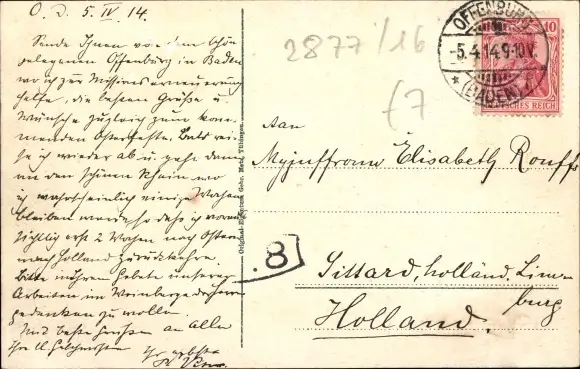 O. D. 5. IV 14.
Sende Ihnen von dem schön
gelegenen Offenburg in Baden
wo ich zur Missionserneuerung
helfe, die besten Grüße u.
Wünsche zugleich zum kom-
menden Osterfeste. Bald rei-
se ich wieder ab u. gehe dann
an den schönen Rhein wo
ich wahrscheinlich einige Wochen
bleiben werde so daß ich voraus
sichtlich erst 2 Wochen nach Ostern
nach Holland zurückkehre.
Bitte in Ihrem Gebete unserer
Arbeiten im Weinberge des Herrn
gedenken zu wollen.
Mit besten Grüßen an Alle
Ihr
2877/16
f7
OFFENBURG
-5.4.14.9-10V.
* (BADEN)
10
DEUTSCHES REICH
Aan
Myjuffrouw Elisabeth
Sittard, holländ. Lim-
burg
Holland.
8
Original-Eigentum Gebr. Metz, Tübingen.